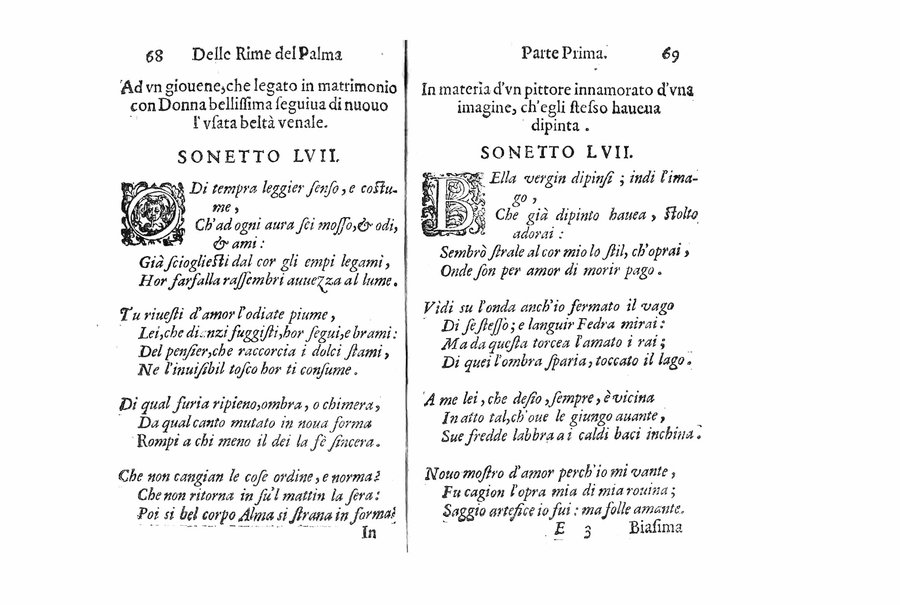 68 Delle Rime del Palma
Ad vn giouene, che legato in matrimonio
con Donna bellissima seguiua di nuouo
l'vsata beltà venale.
SONETTO LVII.
O Di tempra leggier senso, e costu-
me,
Ch'ad ogni aura sei mosso, & odi,
& ami:
Già sciogliesti dal cor gli empi legami,
Hor farfalla rassembri auuezza al lume.
Tu riuesti d'amor l'odiate piume,
Lei, che dianzi fuggisti, hor segui, e brami:
Del pensier, che raccorcia i dolci stami,
Ne l'inuisibil tosco hor ti consume.
Di qual furia ripieno, ombra, o chimera,
Da qual canto mutato in noua forma
Rompi a chi meno il dei la fè sincera.
Che non cangian le cose ordine, e norma?
Che non ritorna in su'l mattin la sera?
Poi si bel corpo Alma si strana informa?
In
Parte Prima. 69
In materia d'vn pittore innamorato d'vna
imagine, ch'egli stesso haueua
dipinta.
SONETTO LVII.
BElla vergin dipinsi; indi l'ima-
go,
Che già dipinto hauea, stolto
adorai:
Sembrò strale al cor mio lo stil, ch'oprai,
Onde son per amor di morir pago.
Vidi su l'onda anch'io fermato il vago
Di se stesso; e languir Fedra mirai:
Ma da questa torcea l'amato i rai;
Di quei l'ombra sparia, toccato il lago.
A me lei, che desio, sempre, è vicina
In atto tal, ch'oue le giungo auante,
Sue fredde labbra a i caldi baci inchina.
Nouo mostro d'amor perch'io mi vante,
Fu cagion l'opra mia di mia rouina;
Saggio artefice io fui: ma folle amante.
E 3 Biasima